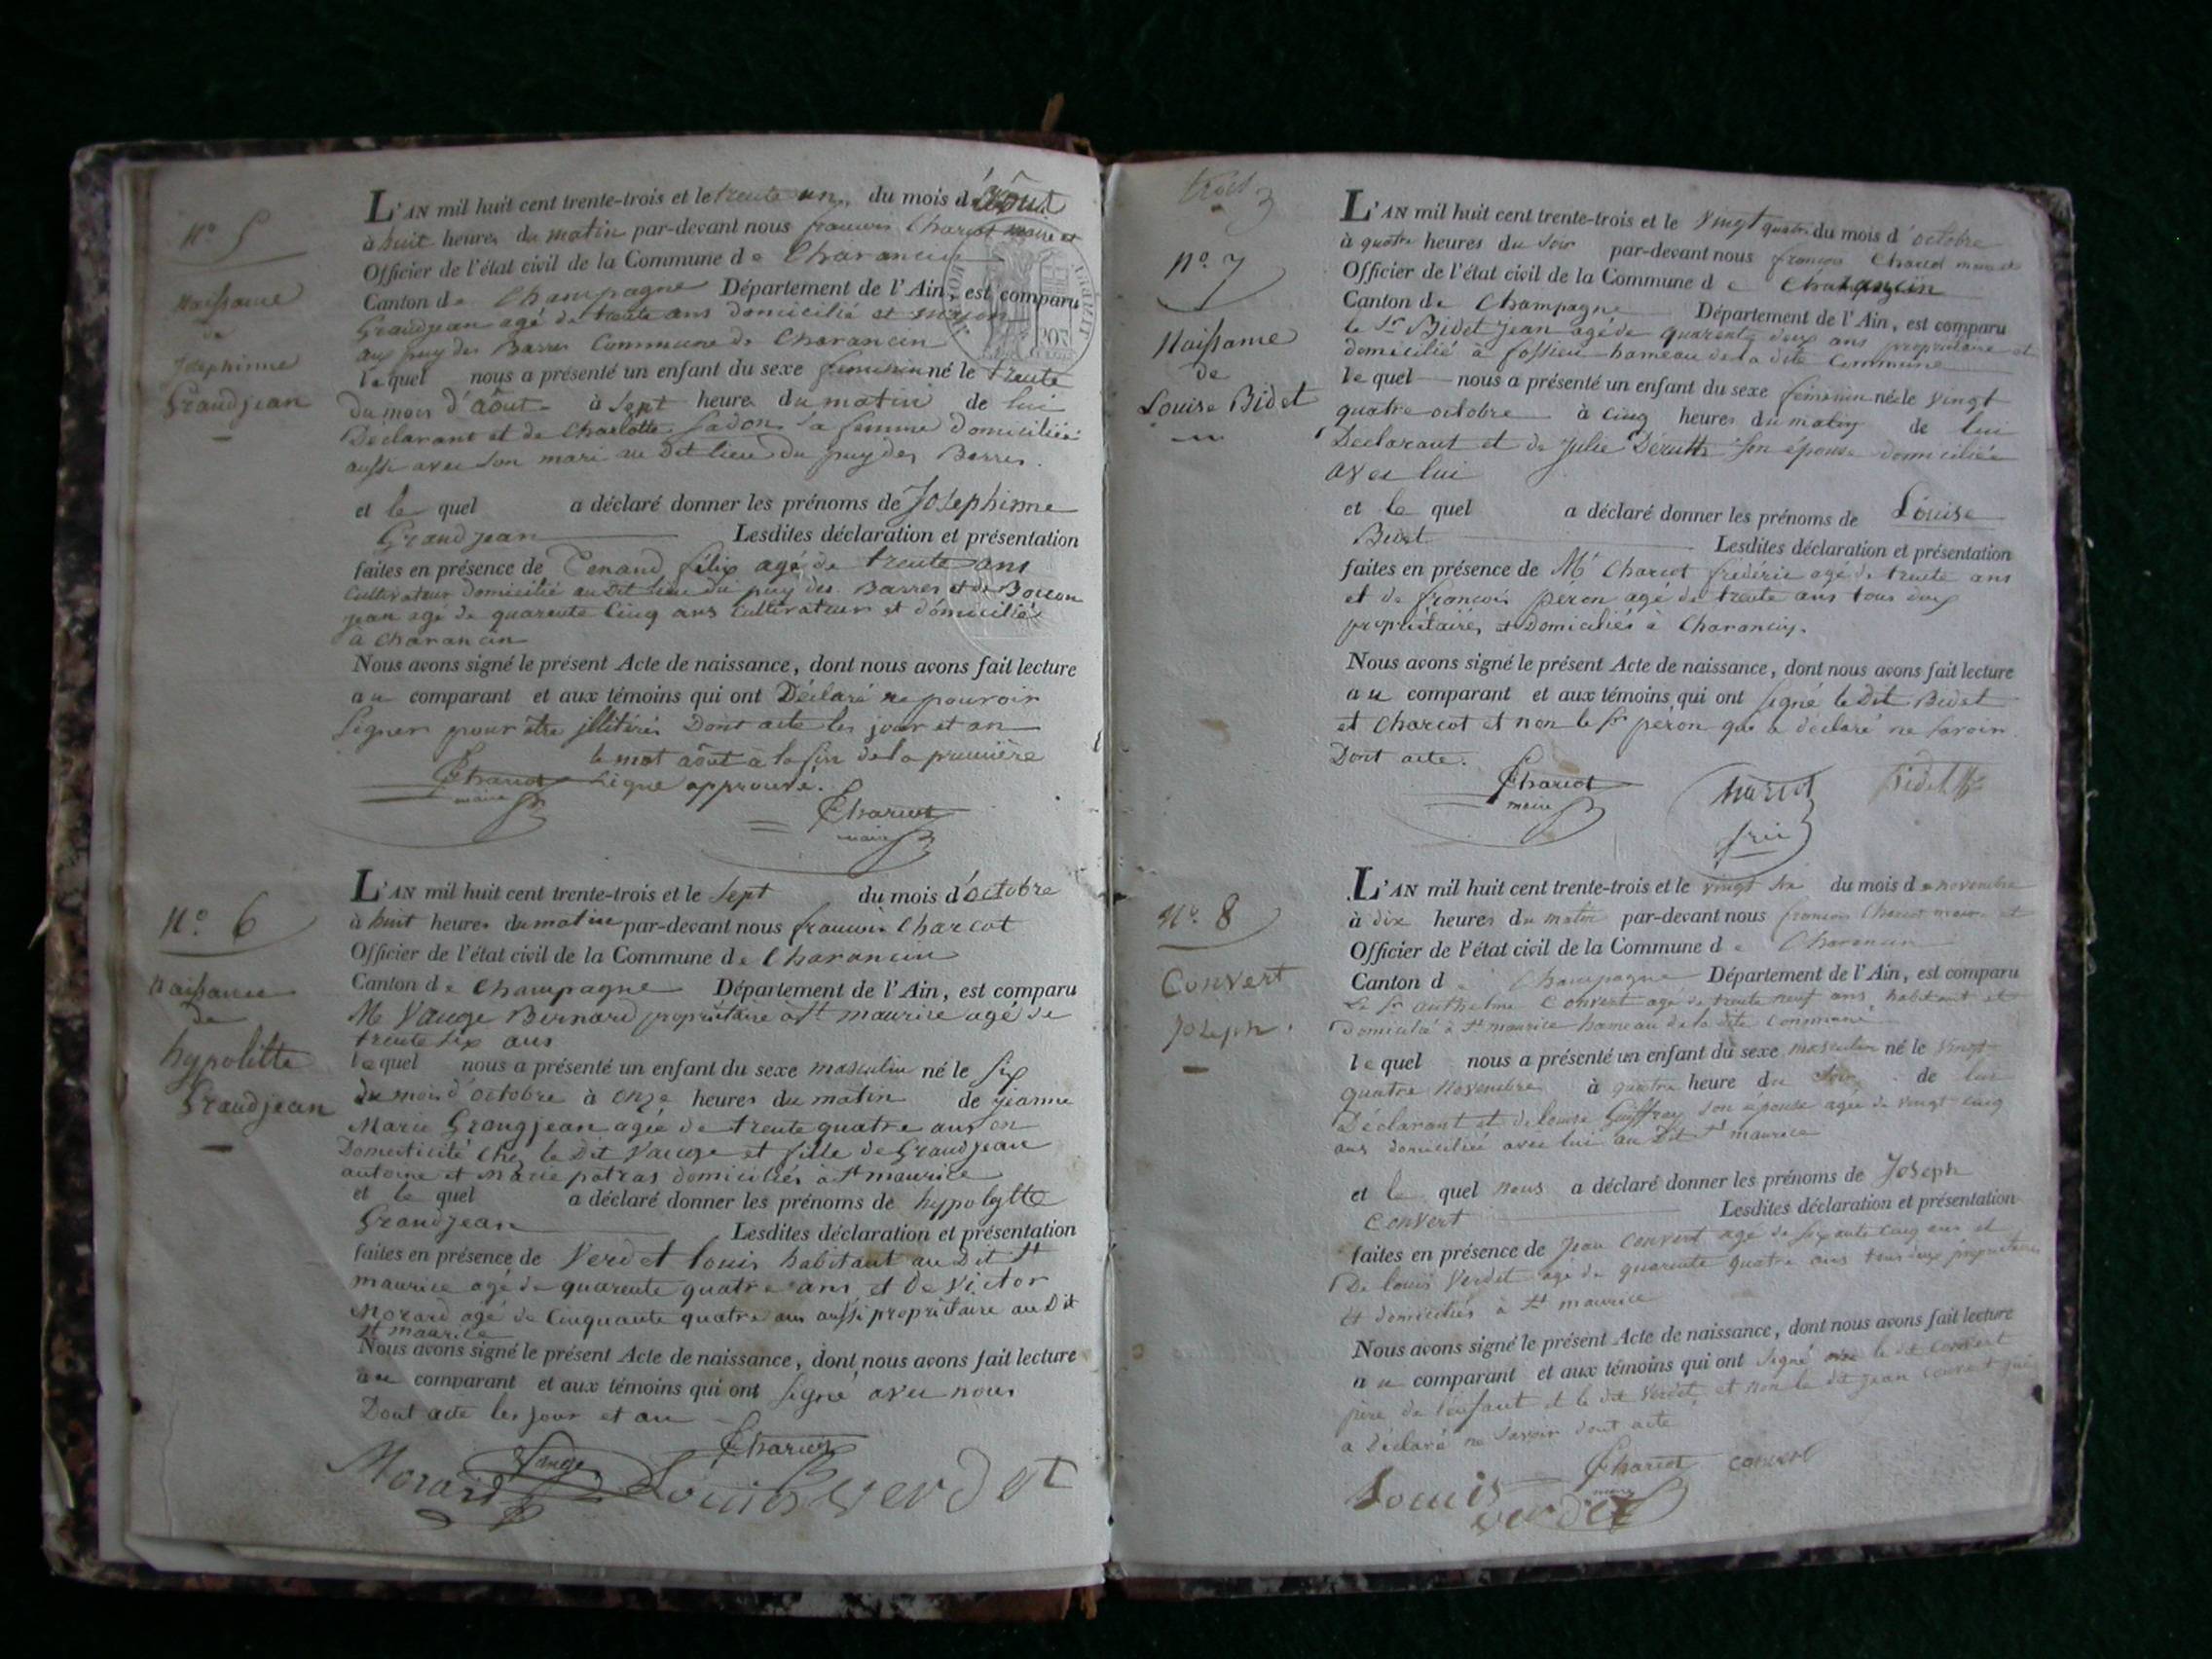 N° 5
Naissance
de
Josephinne
Grandjean
L'AN mil huit cent trente-trois et le trente un du mois d'août
à huit heures du matin par-devant nous francois Charcot maire et
Officier de l'état civil de la Commune de Charancin
Canton de Champagne Département de l'Ain, est comparu
Grandjean agé de trente ans domicilié et
aux puy des Barres Commune de Charancin
lequel nous a présenté un enfant du sexe feminin né le trente
du mois d'août à sept heure du matin de lui
Déclarant et de Charlotte sa femme domiciliée
aussi avec son mari au Dit lieu du puy des Barres.
et le quel a déclaré donner les prénoms de Josephinne
Grandjean Lesdites déclaration et présentation
faites en présence de felix agé de trente ans
Cultivateur domicilié au Dit lieu du puy des Barres et de
jean agé de quarente Cinq ans Cultivateur et domicilié
à Charancin
Nous avons signé le présent Acte de naissance, dont nous avons fait lecture
au comparant et aux témoins qui ont Déclaré ne pouvoir
signer pour être illitérés Dont acte les jour et an
le mot août à la fin de la première
ligne approuvé.
Charcot
maire
Charcot
maire
N° 6
Naissance
de
hypolitte
Grandjean
L'AN mil huit cent trente-trois et le sept du mois d'octobre
à huit heures du matin par-devant nous francois Charcot
Officier de l'état civil de la Commune de Charancin
Canton de Champagne Département de l'Ain, est comparu
Mr Vauge Bernard propriétaire a St maurice agé de
trente six ans
lequel nous a présenté un enfant du sexe masculin né le six
du mois d'octobre à onze heures du matin de jeanne
Marie Grangjean agée de trente quatre ans en
Domesticité chez le Dit Vauge et fille de Grandjean
antoine et marie patras domiciliés à St maurice
et le quel a déclaré donner les prénoms de hypolytte
Grandjean Lesdites déclaration et présentation
faites en présence de Verdet louis habitant au Dit St
maurice agé de quarente quatre ans et de victor
Morard agé de Cinquante quatre ans aussi propriétaire au Dit
St maurice
Nous avons signé le présent Acte de naissance, dont nous avons fait lecture
au comparant et aux témoins qui ont signé avec nous
Dont acte les jour et an
Charcot
Morard Vauge Louis verdet
N° 7
Naissance
de
Louise Bidet
L'AN mil huit cent trente-trois et le vingt quatre du mois d'octobre
à quatre heures du soir par-devant nous francois Charcot maire et
Officier de l'état civil de la Commune de Charancin
Canton de Champagne Département de l'Ain, est comparu
le Sr Bidet jean agé de quarente deux ans propriétaire et
domicilié à fossieu hameau de la dite Commune
lequel nous a présenté un enfant du sexe féminin né le vingt
quatre octobre à cinq heures du matin de lui
Déclarant et de Julie son épouse domiciliée
avec lui
et le quel a déclaré donner les prénoms de Louise
Bidet Lesdites déclaration et présentation
faites en présence de Mr Charcot frédéric agé de trente ans
et de francois peron agé de trente ans tous deux
propriétaires et Domiciliés à Charancin.
Nous avons signé le présent Acte de naissance, dont nous avons fait lecture
au comparant et aux témoins qui ont signé le Dit Bidet
et Charcot et non le Sr peron qui a déclaré ne savoir.
Dont acte.
Charcot
maire
Charcot
Bidet
N° 8
Convert
Joseph.
L'AN mil huit cent trente-trois et le vingt six du mois de novembre
à dix heures du matin par-devant nous francois Charcot maire et
Officier de l'état civil de la Commune de Charancin
Canton de Champagne Département de l'Ain, est comparu
Le Sr anthelme Convert agé de trente neuf ans habitant et
Domicilié à St maurice hameau de la dite Commune
lequel nous a présenté un enfant du sexe masculin né le vingt
quatre novembre à quatre heure du soir de lui
Déclarant et de louise Guiffray son épouse agée de vingt cinq
ans domiciliée avec lui au Dit St maurice
et le quel nous a déclaré donner les prénoms de Joseph
Convert Lesdites déclaration et présentation
faites en présence de Jean Convert agé de soixante cinq ans et
De louis Verdet agé de quarente quatre ans tous deux propriétaires
et domiciliés à St maurice
Nous avons signé le présent Acte de naissance, dont nous avons fait lecture
au comparant et aux témoins qui ont signé avec le dit Convert
père de l'enfant et le dit Verdet et non le dit jean Convert qui
a Déclaré ne savoir dont acte
Charcot convert
maire
Louis
verdet